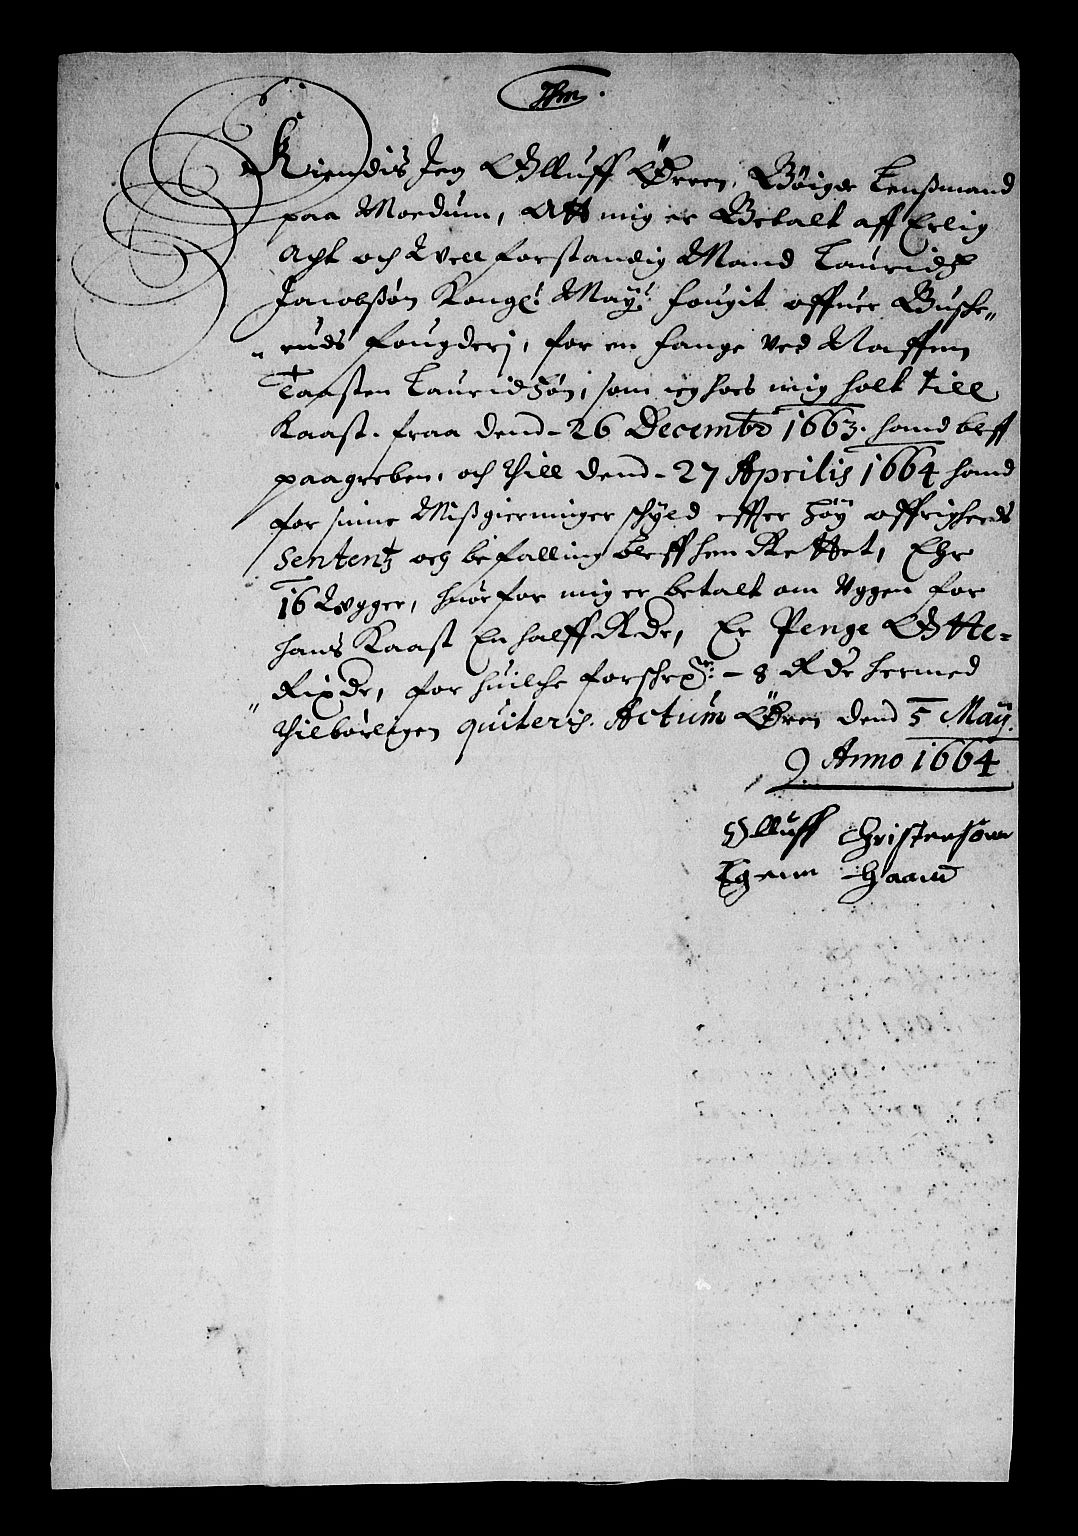 Kiendis Jeg Olluff Øren, Bøigde Lenßmand
paa Modum, Att mig er Betalt aff Erlig
Acht och Vell forstandig Mand Lauridtz
Jacobßøn Kongl: May: fougit offuer Buske„
„ruds fougderj, for en fange ved Naffnn
Taasten Lauridtzøn, som ieg hoes mig holt till
Kaast. fraa dend - 26 Decembr 1663. hand bleff
paagreben, och thill dend - 27 Aprilis 1664 hand
for sinne Mißgierninger schyld effter høy øffrigheds
Sententz och befalling bleff hen Rettet, Ehr
16 Vgger, huorfor mig er betalt om Vggen for
hans Kaast En halff Rdr, Er Penge Otte-
Rixdr, for huilche forschr: - 8 Rdr hermed
„ thilbørligen quiteris. Actum Øren dend 5 Maÿ.
Anno 1664
Olluff Christensønn
Egenn Haand